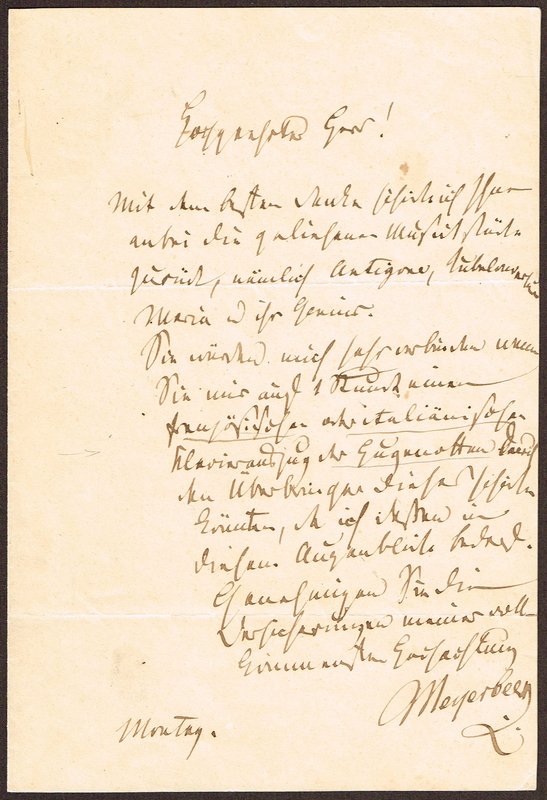 Hochgeehrter Herr!
Mit dem besten Danke schicke ich Ihnen
anbei die geliehenen Musikstücke
zurück, nämlich Antigone,
Maria u ihr Genius.
Sie würden mich sehr verbinden wenn
Sie mir auf 1 Stunde einen
französischen oder italiänischen
Klavierauszug der Hugenotten durch
den Überbringer dieses schicken
könnten, da ich dessen in
diesem Augenblicke bedarf.
Genehmigen Sie die
Versicherungen meiner voll-
kommensten Hochachtung
Meyerbeer
Montag.